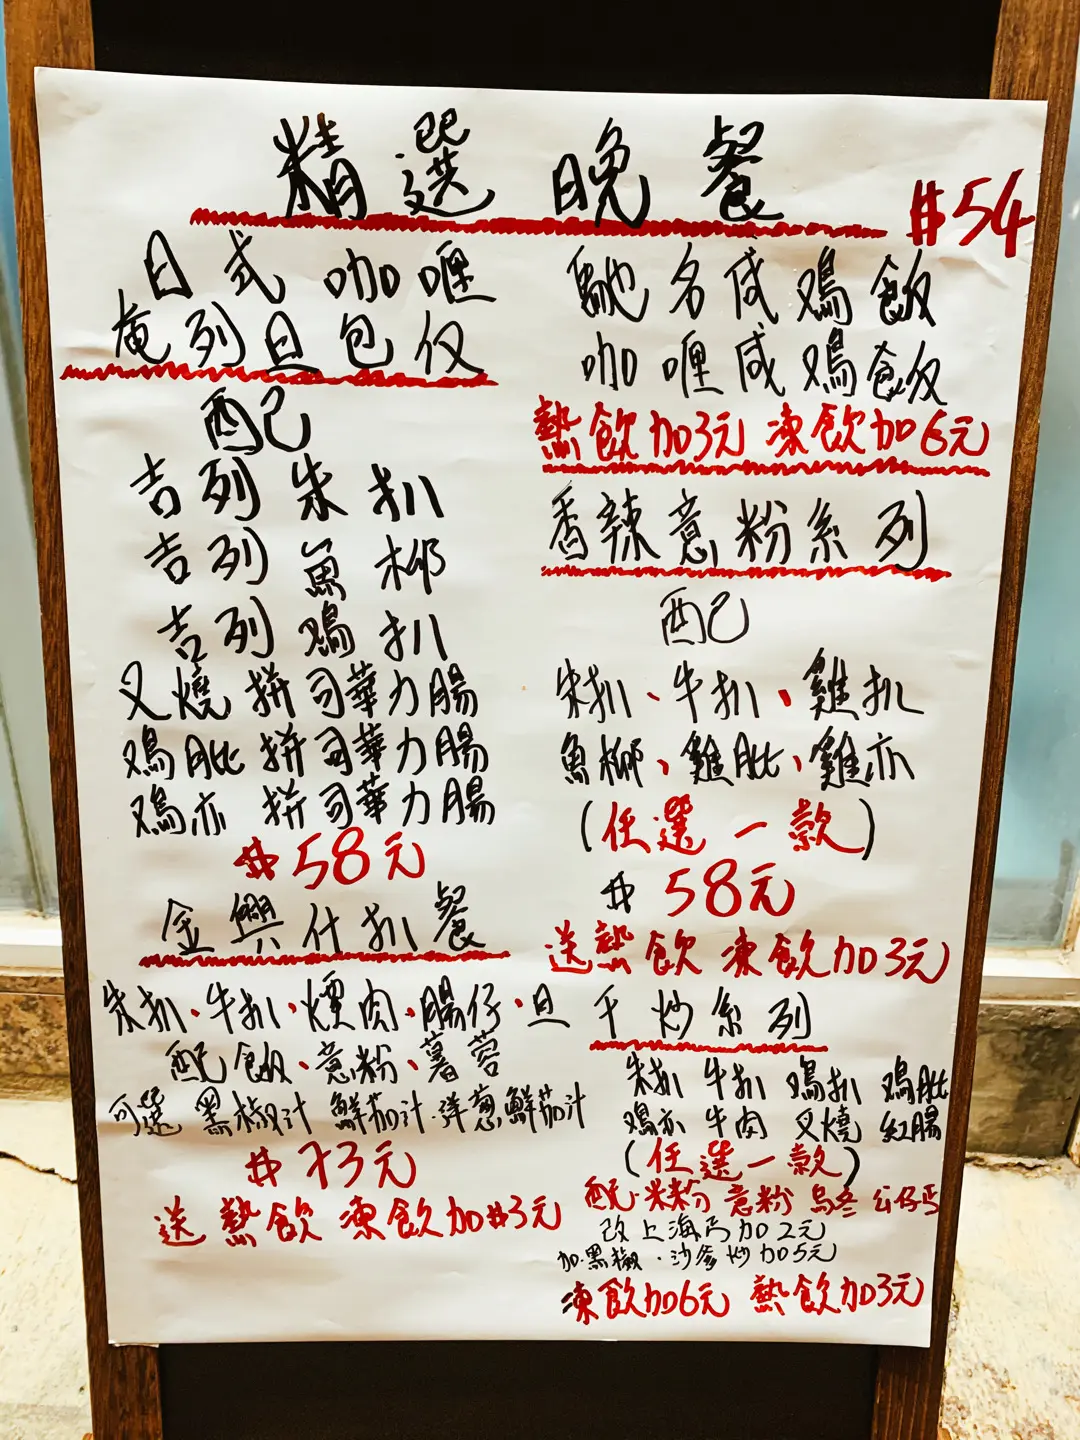 精選晚餐
日式咖喱
奄列旦包仅
配己
吉列朱扒
吉列魚柳
吉列鳮扒
叉燒拼司華力腸
鳮肶拼司華力腸
鳮亦拼司華力腸
$58元
金興什扒餐
朱扒、牛扒、煙肉、腸仔、旦
配飯、意粉、薯蓉
可選黑椒汁 鮮茄汁·洋葱鮮茄汁
$73元
送熱飲凍飲加$3元
$54
馳名咸鳮飯
咖喱咸鳮飯
熱飲加3元 凍飲加6元
香辣意粉系列
配己
朱扒、牛扒、雞扒
魚柳、雞肶、雞亦
(任選一款)
$58元
送熱飲 凍飲加3元
干炒系列
朱扒 牛扒 鳮扒 鳮肶
鳮亦 牛肉 叉燒 紅腸
(任選一款)
配·米粉 意粉 烏冬 公仔丐
改上海丐加2元
加·黑椒·沙爹炒加5元
凍飲加6元 熱飲加3元